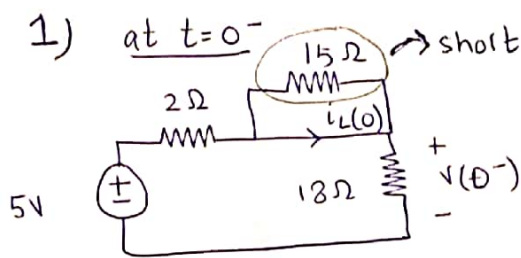 1) at t=0⁻
15 Ω → short
2 Ω
iL(0)
+
5V
18Ω
V(0⁻)
-